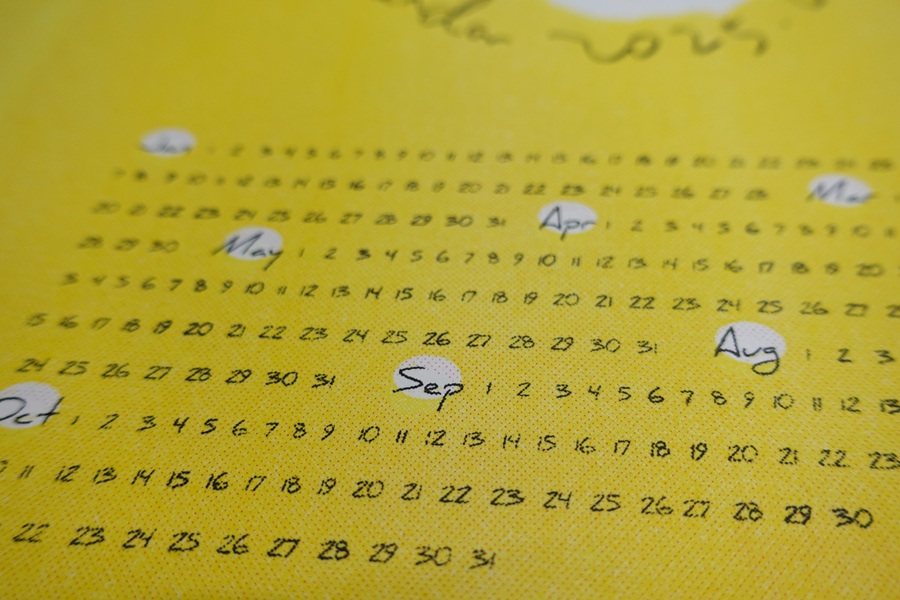 Jan 1 2 3 4 5 6 7 8 9 10 11 12 13 14 15 16 17 18 19 20 21 22 23 24 25
7 8 9 10 11 12 13 14 15 16 17 18 19 20 21 22 23 24 25 26 27 28 Mar
20 21 22 23 24 25 26 27 28 29 30 31 Apr 1 2 3 4 5 6 7 8 9 10 11
28 29 30 May 1 2 3 4 5 6 7 8 9 10 11 12 13 14 15 16 17 18 19 20
3 4 5 6 7 8 9 10 11 12 13 14 15 16 17 18 19 20 21 22 23 24 25 26 27
15 16 17 18 19 20 21 22 23 24 25 26 27 28 29 30 31 Aug 1 2 3
24 25 26 27 28 29 30 31 Sep 1 2 3 4 5 6 7 8 9 10 11 12 13
Oct 1 2 3 4 5 6 7 8 9 10 11 12 13 14 15 16 17 18 19 20 21 22 23
11 12 13 14 15 16 17 18 19 20 21 22 23 24 25 26 27 28 29 30
22 23 24 25 26 27 28 29 30 31